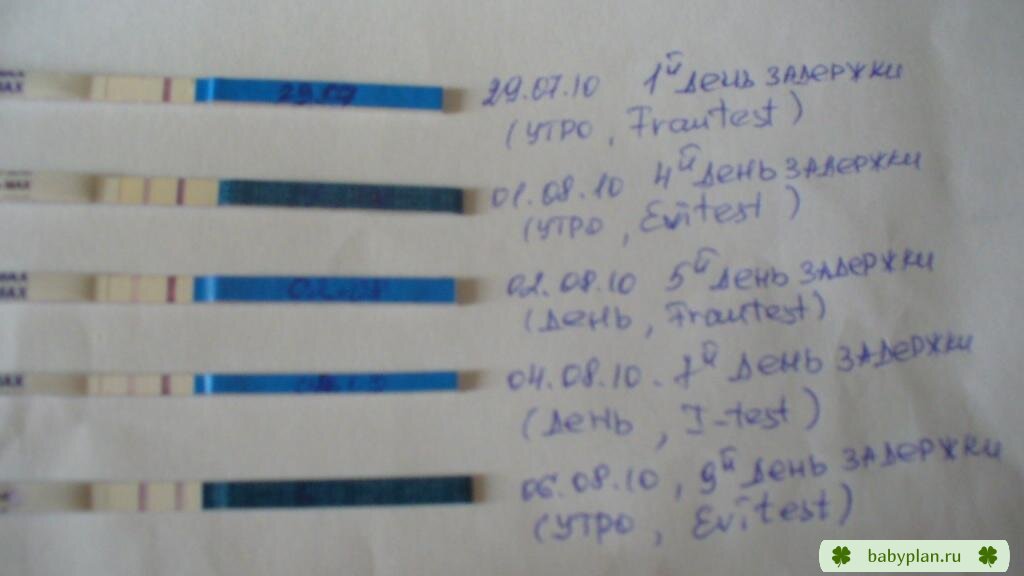 MAX
MAX
29.07
29.07.10 1й день задержки
(утро, Frautest)
MAX
01.08.10 4й день задержки
(утро, Evitest)
MAX
MAX
02.08.10 5й день задержки
(день, Frautest)
MAX
04.08.10. 7й день задержки
(день, I-test)
06.08.10, 9й день задержки
(утро, Evitest)
babyplan.ru